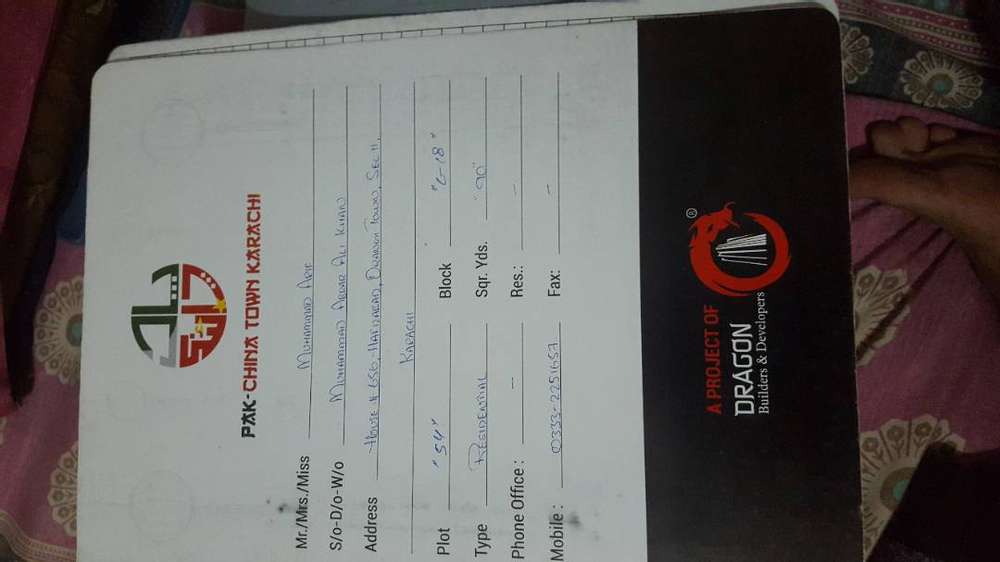 PAK-CHINA TOWN KARACHI
Mr./Mrs./Miss MUHAMMAD ARIF
S/o-D/o-W/o MUHAMMAD AKBAR ALI KHAN
Address HOUSE # 656, HANIFABAD, ORANGI TOWN, SEC 11,
KARACHI
Plot "54" Block "C-18"
Type RESIDENTIAL Sqr. Yds. "90"
Phone Office : — Res.: —
Mobile : 0333-2251657 Fax: —
A PROJECT OF
DRAGON ®
Builders & Developers